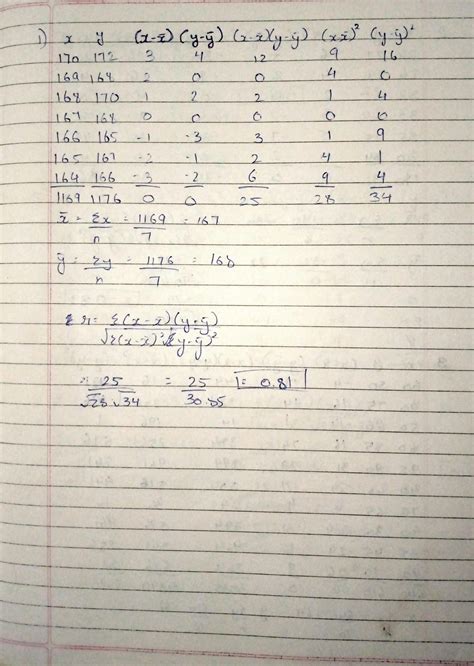 1) x y (x-x̄) (y-ȳ) (x-x̄)(y-ȳ) (x-x̄)² (y-ȳ)²
170 172 3 4 12 9 16
169 168 2 0 0 4 0
168 170 1 2 2 1 4
167 168 0 0 0 0 0
166 165 -1 -3 3 1 9
165 167 -2 -1 2 4 1
164 166 -3 -2 6 9 4
1169 1176 0 0 25 28 34
x̄ = Σx/n = 1169/7 = 167
ȳ = Σy/n = 1176/7 = 168
r = Σ(x-x̄)(y-ȳ)/√Σ(x-x̄)²√Σ(y-ȳ)²
= 25/√28√34 = 25/30.85 = 0.81